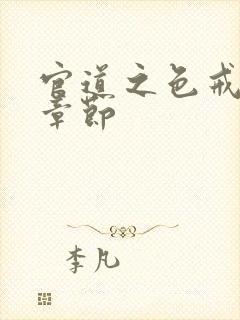 官道之色戒
章节
李凡